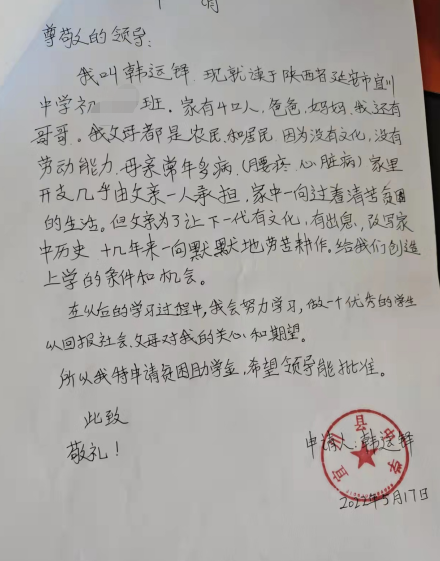 申请
尊敬的领导:
我叫韩运铎 现就读于陕西省延安市宜川
中学初 班. 家有4口人, 爸爸, 妈妈, 我还有
哥哥。我父母都是农民,和居民 因为没有文化,没有
劳动能力, 母亲常年多病, (腰疼、心脏病) 家里
开支几乎由父亲一人承担, 家中一向过着清苦贫困
的生活。但父亲为了让下一代有文化, 有出息, 改写家
中历史 十几年来一向默默地劳苦耕作。给我们创造
上学的条件和机会。
在以后的学习过程中, 我会努力学习, 做一个优秀的学生
以回报社会、父母对我的关心和期望。
所以我特申请贫困助学金, 希望领导能批准。
此致
敬礼!
申请人: 韩运铎
2022年5月17日
宜川县 中学